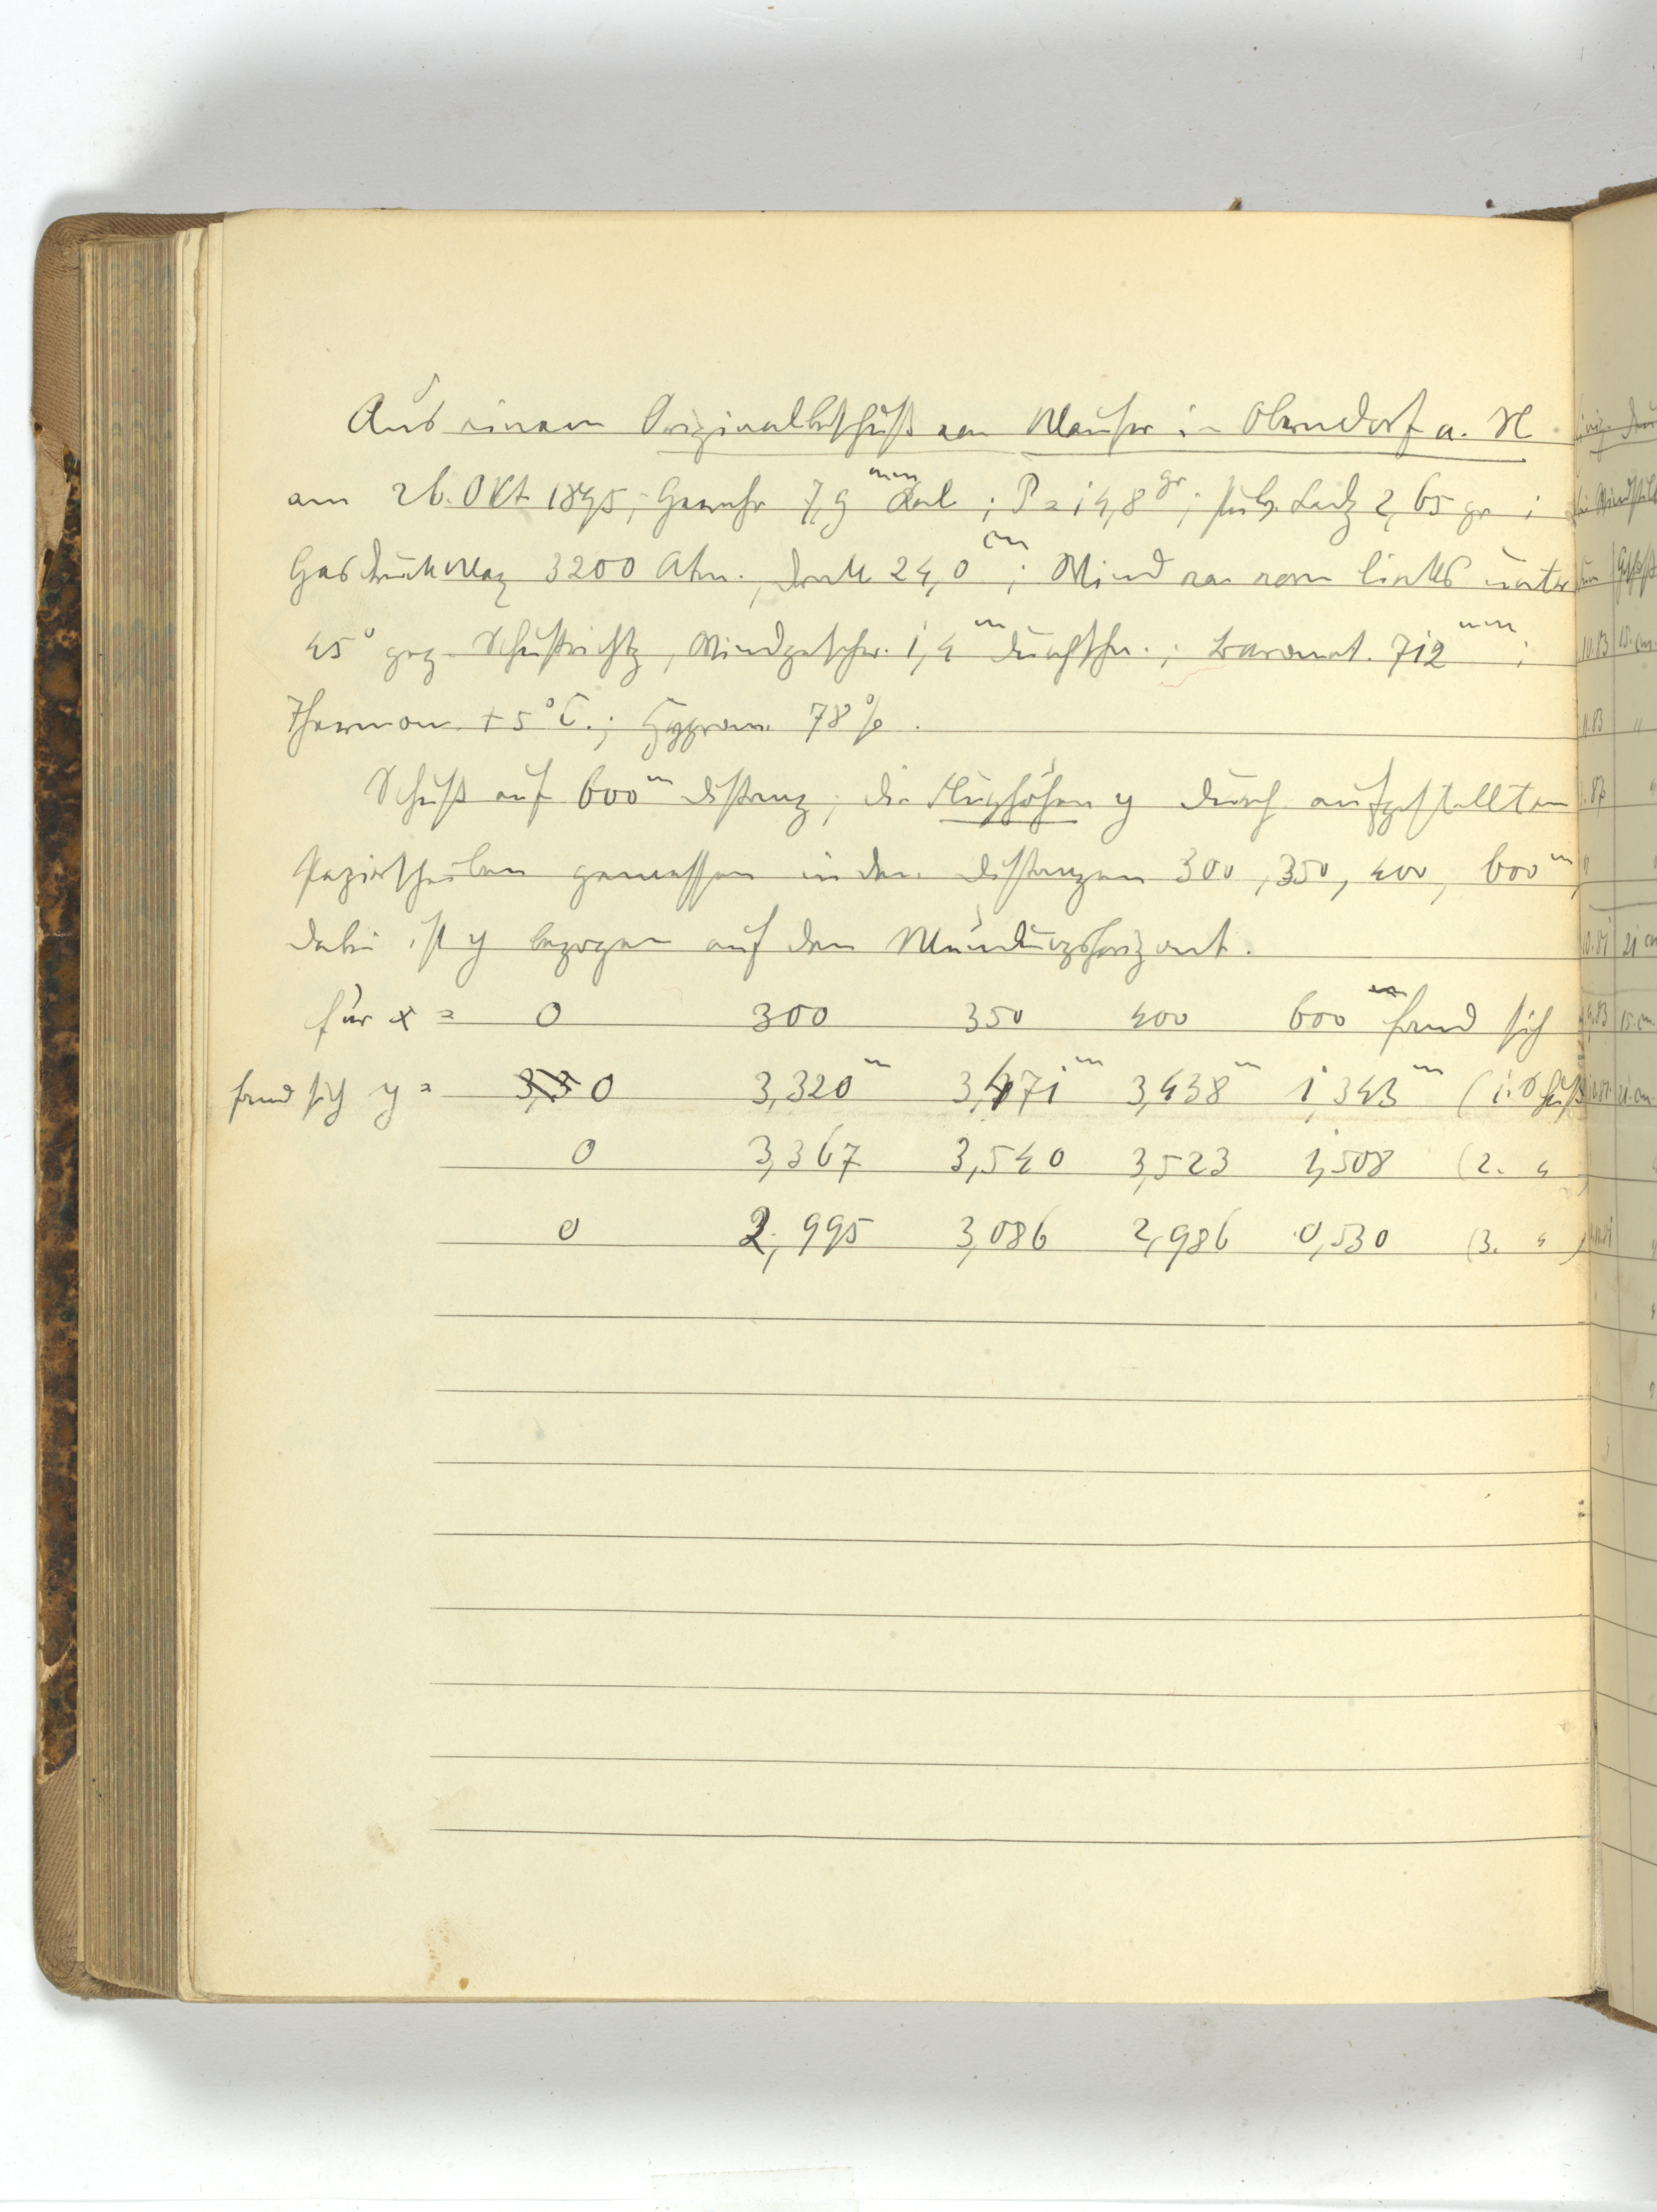 Aus einem Originalbeschuß von Mauser in Oberndorf a. N
am 26. Okt 1895; Gewehr 7,9 mm Kal; P = 14,8 gr; Pulv. Ladg 2,65 gr;
Gasdruck Max 3200 Atm.; 24,0 cm; Wind von vorn links unter
45° geg. Schußrichtg, Windgeschw. 1,4 m durchschn.; Baromet. 712 mm;
Thermom. +5° C.; Hygrom. 78 %.
Schuß auf 600 m Distanz; die Flughöhen y durch aufgestellten
Papierscheiben gemessen in den Distanzen 300, 350, 400, 600 m,
dabei ist y bezogen auf den Mündungshorizont.
für x = 0 300 350 400 600 m fand sich
fand sich y = 0 3,320 m 3,471 m 3,438 m 1,343 m (1. Schuß
0 3,367 3,540 3,523 1,508 (2. "
0 2,995 3,086 2,986 0,530 (3. " )